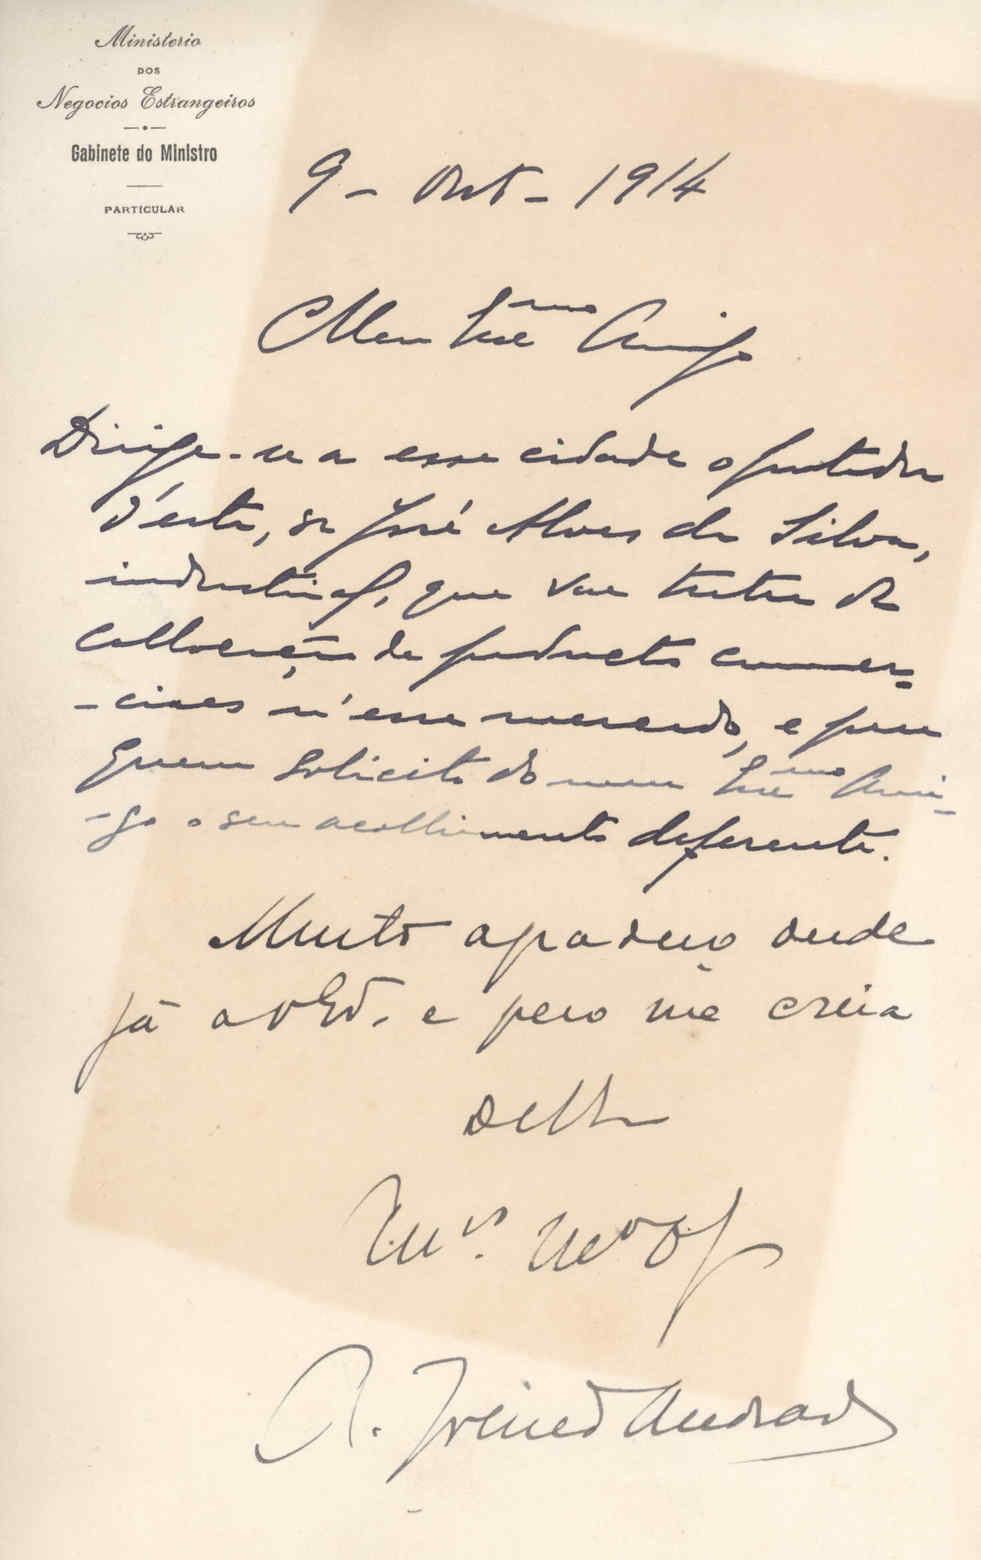 Ministerio
DOS
Negocios Estrangeiros
Gabinete do Ministro
PARTICULAR
9 - Out - 1914
Meu Exmo Amigo
Dirige-se a essa cidade o portador
d'esta, sr José Alves da Silva,
industrial, que vae tratar da
collocação de productos commer-
-ciaes n'esse mercado, e para
quem solicito do meu Exmo Ami-
-go o seu acolhimento deferente.
Muito agradeço desde
já a VExa. e peço me creia
De VExa
A. Freire d'Andrade